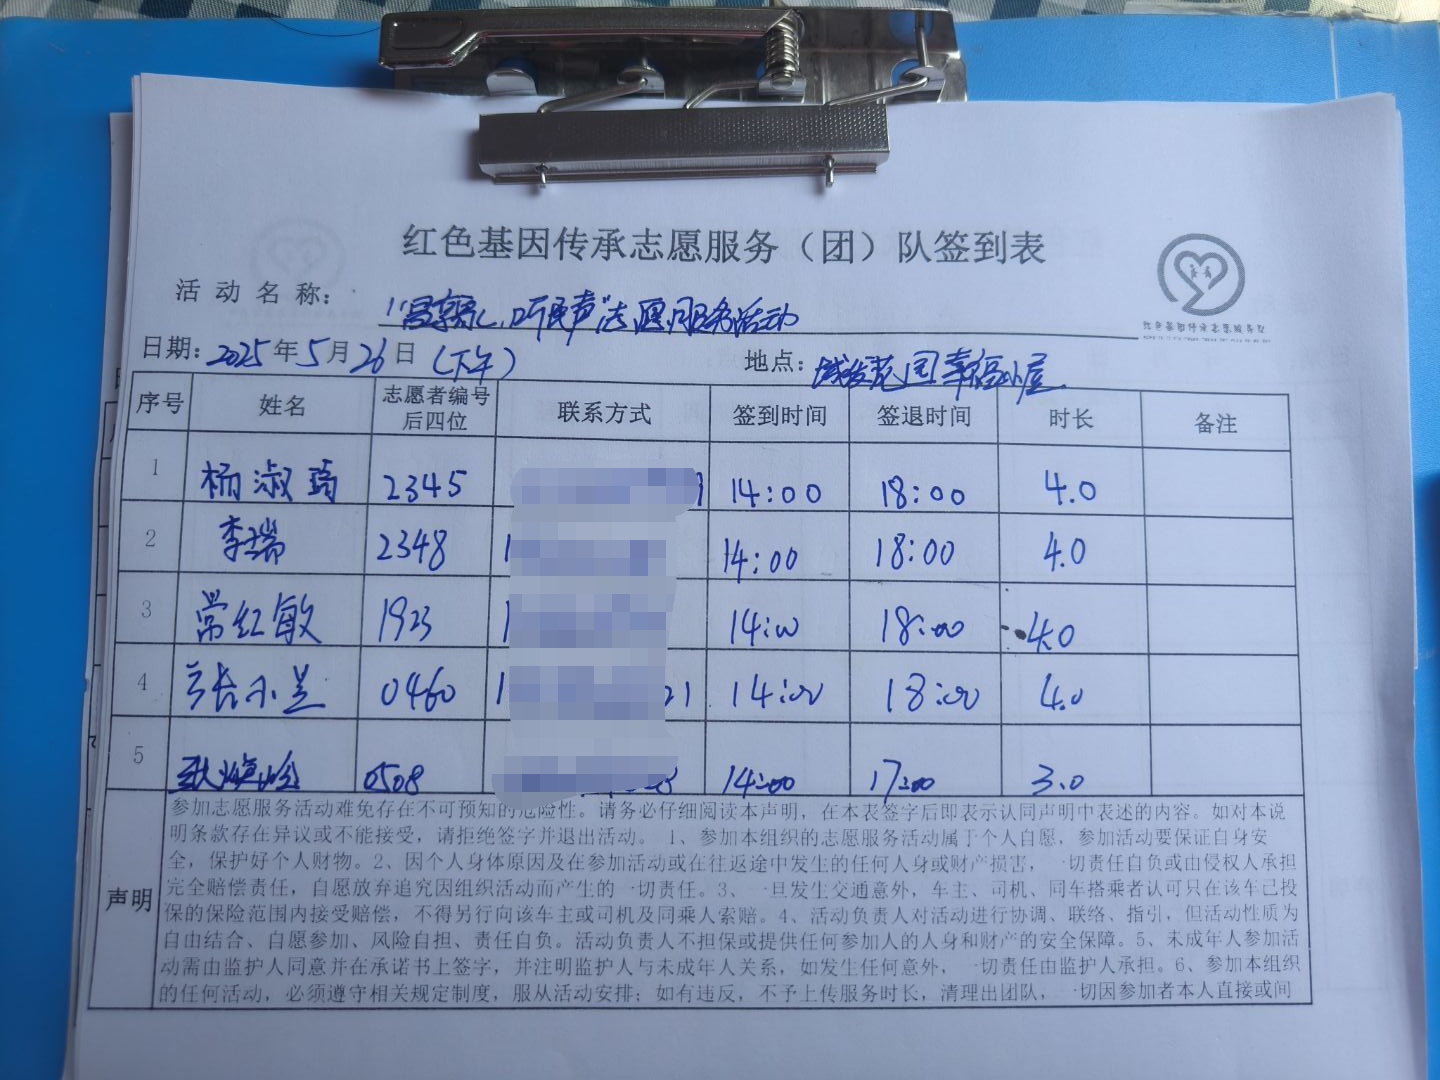 红色基因传承志愿服务（团）队签到表
活动名称： 听民声"志愿服务活动
红色基因传承志愿服务队
日期：2025年5月26日（下午） 地点： 花园幸福小屋
序号 姓名 志愿者编号后四位 联系方式 签到时间 签退时间 时长 备注
1 杨淑琦 2345 14:00 18:00 4.0
2 李瑞 2348 14:00 18:00 4.0
3 常红敏 1923 14:00 18:00 4.0
4 张小兰 0460 21 14:00 18:00 4.0
5 0508 14:00 17:00 3.0
声明
参加志愿服务活动难免存在不可预知的危险性。请务必仔细阅读本声明，在本表签字后即表示认同声明中表述的内容。如对本说
明条款存在异议或不能接受，请拒绝签字并退出活动。1、参加本组织的志愿服务活动属于个人自愿，参加活动要保证自身安
全，保护好个人财物。2、因个人身体原因及在参加活动或在往返途中发生的任何人身或财产损害，一切责任自负或由侵权人承担
完全赔偿责任，自愿放弃追究因组织活动而产生的一切责任。3、一旦发生交通意外，车主、司机、同车搭乘者认可只在该车已投
保的保险范围内接受赔偿，不得另行向该车主或司机及同乘人索赔。4、活动负责人对活动进行协调、联络、指引，但活动性质为
自由结合、自愿参加、风险自担、责任自负。活动负责人不担保或提供任何参加人的人身和财产的安全保障。5、未成年人参加活
动需由监护人同意并在承诺书上签字，并注明监护人与未成年人关系，如发生任何意外，一切责任由监护人承担。6、参加本组织
的任何活动，必须遵守相关规定制度，服从活动安排；如有违反，不予上传服务时长，清理出团队，一切因参加者本人直接或间